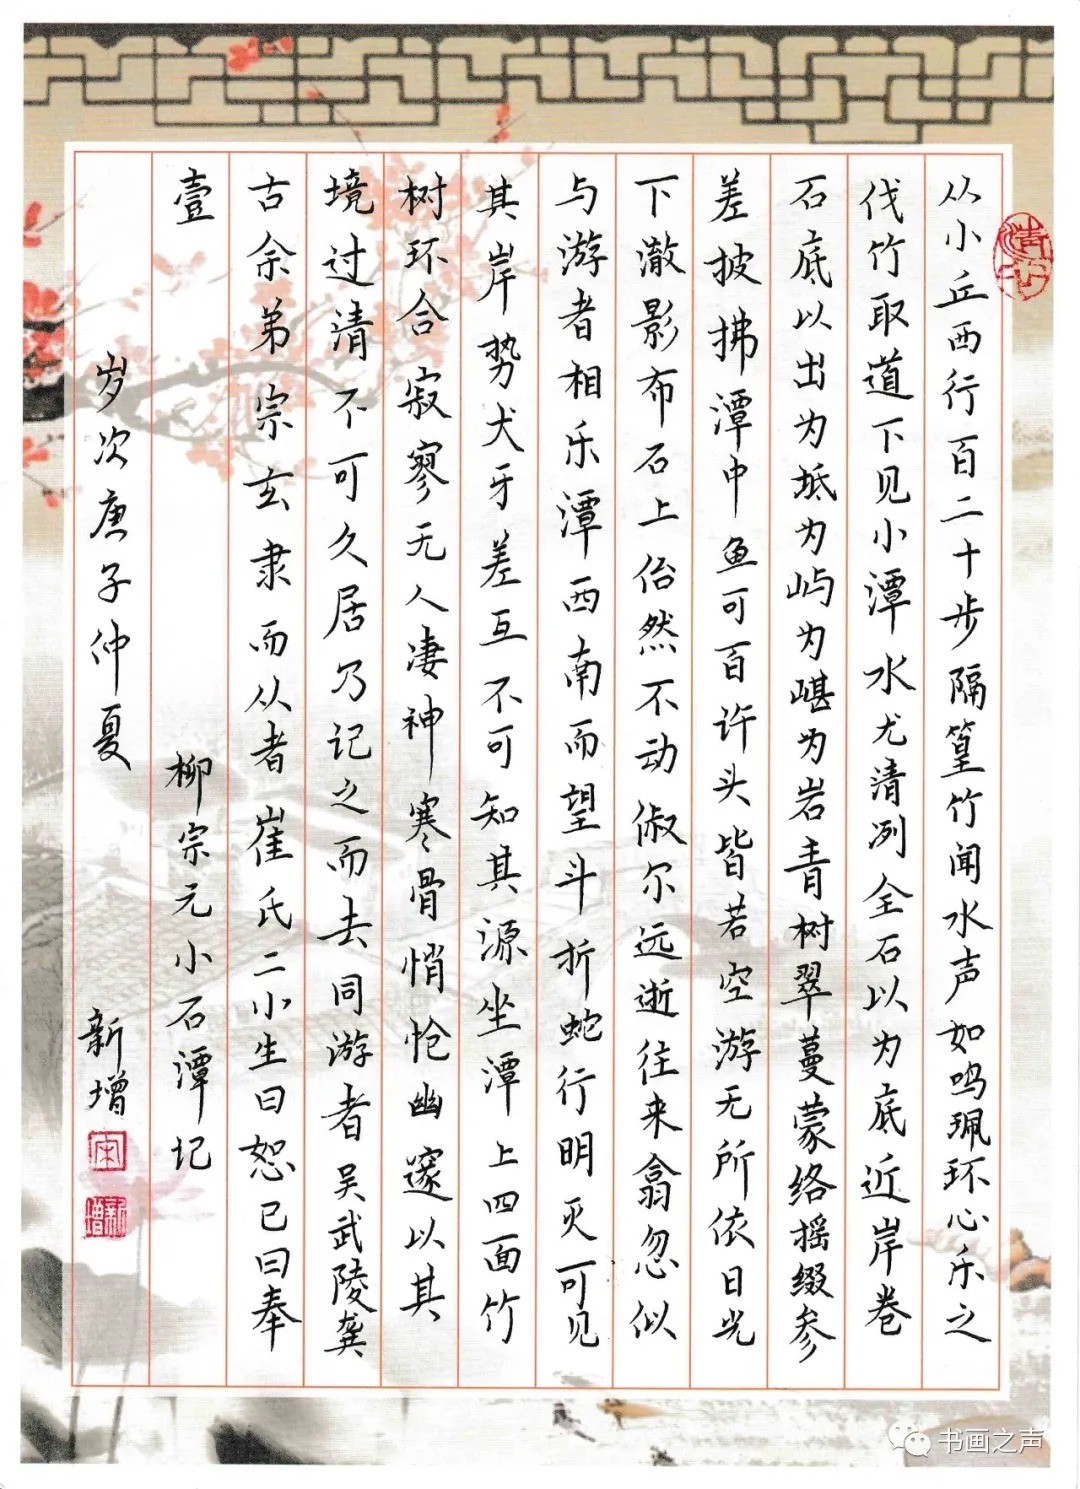 从小丘西行百二十步隔篁竹闻水声如鸣珮环心乐之
伐竹取道下见小潭水尤清冽全石以为底近岸卷
石底以出为坻为屿为嵁为岩青树翠蔓蒙络摇缀参
差披拂潭中鱼可百许头皆若空游无所依日光
下澈影布石上佁然不动俶尔远逝往来翕忽似
与游者相乐潭西南而望斗折蛇行明灭可见
其岸势犬牙差互不可知其源坐潭上四面竹
树环合寂寥无人凄神寒骨悄怆幽邃以其
境过清不可久居乃记之而去同游者吴武陵龚
古余弟宗玄隶而从者崔氏二小生曰恕已曰奉
壹
柳宗元小石潭记
岁次庚子仲夏
新增
宋
新增
书画之声